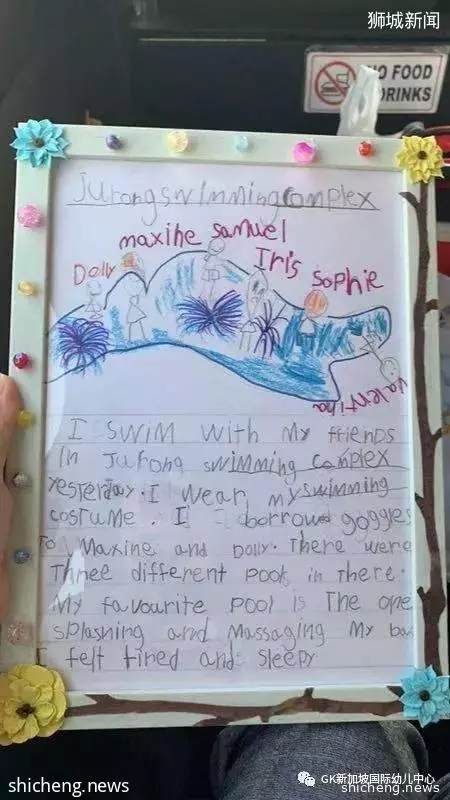 狮城新闻
NO FOOD
DRINKS
Jurong swimming complex
maxine samuel
Dolly
Iris sophie
valentina
I swim with my friends
In Jurong swimming complex
yesterday. I wear my swimming
costume. I borrowed goggles
To Maxine and Dolly. There were
Three different pools in there.
My favourite pool is The one
splashing and Massaging My bac
I felt tired and sleepy
GK新加坡国际幼儿中心
shicheng.news
shicheng.news